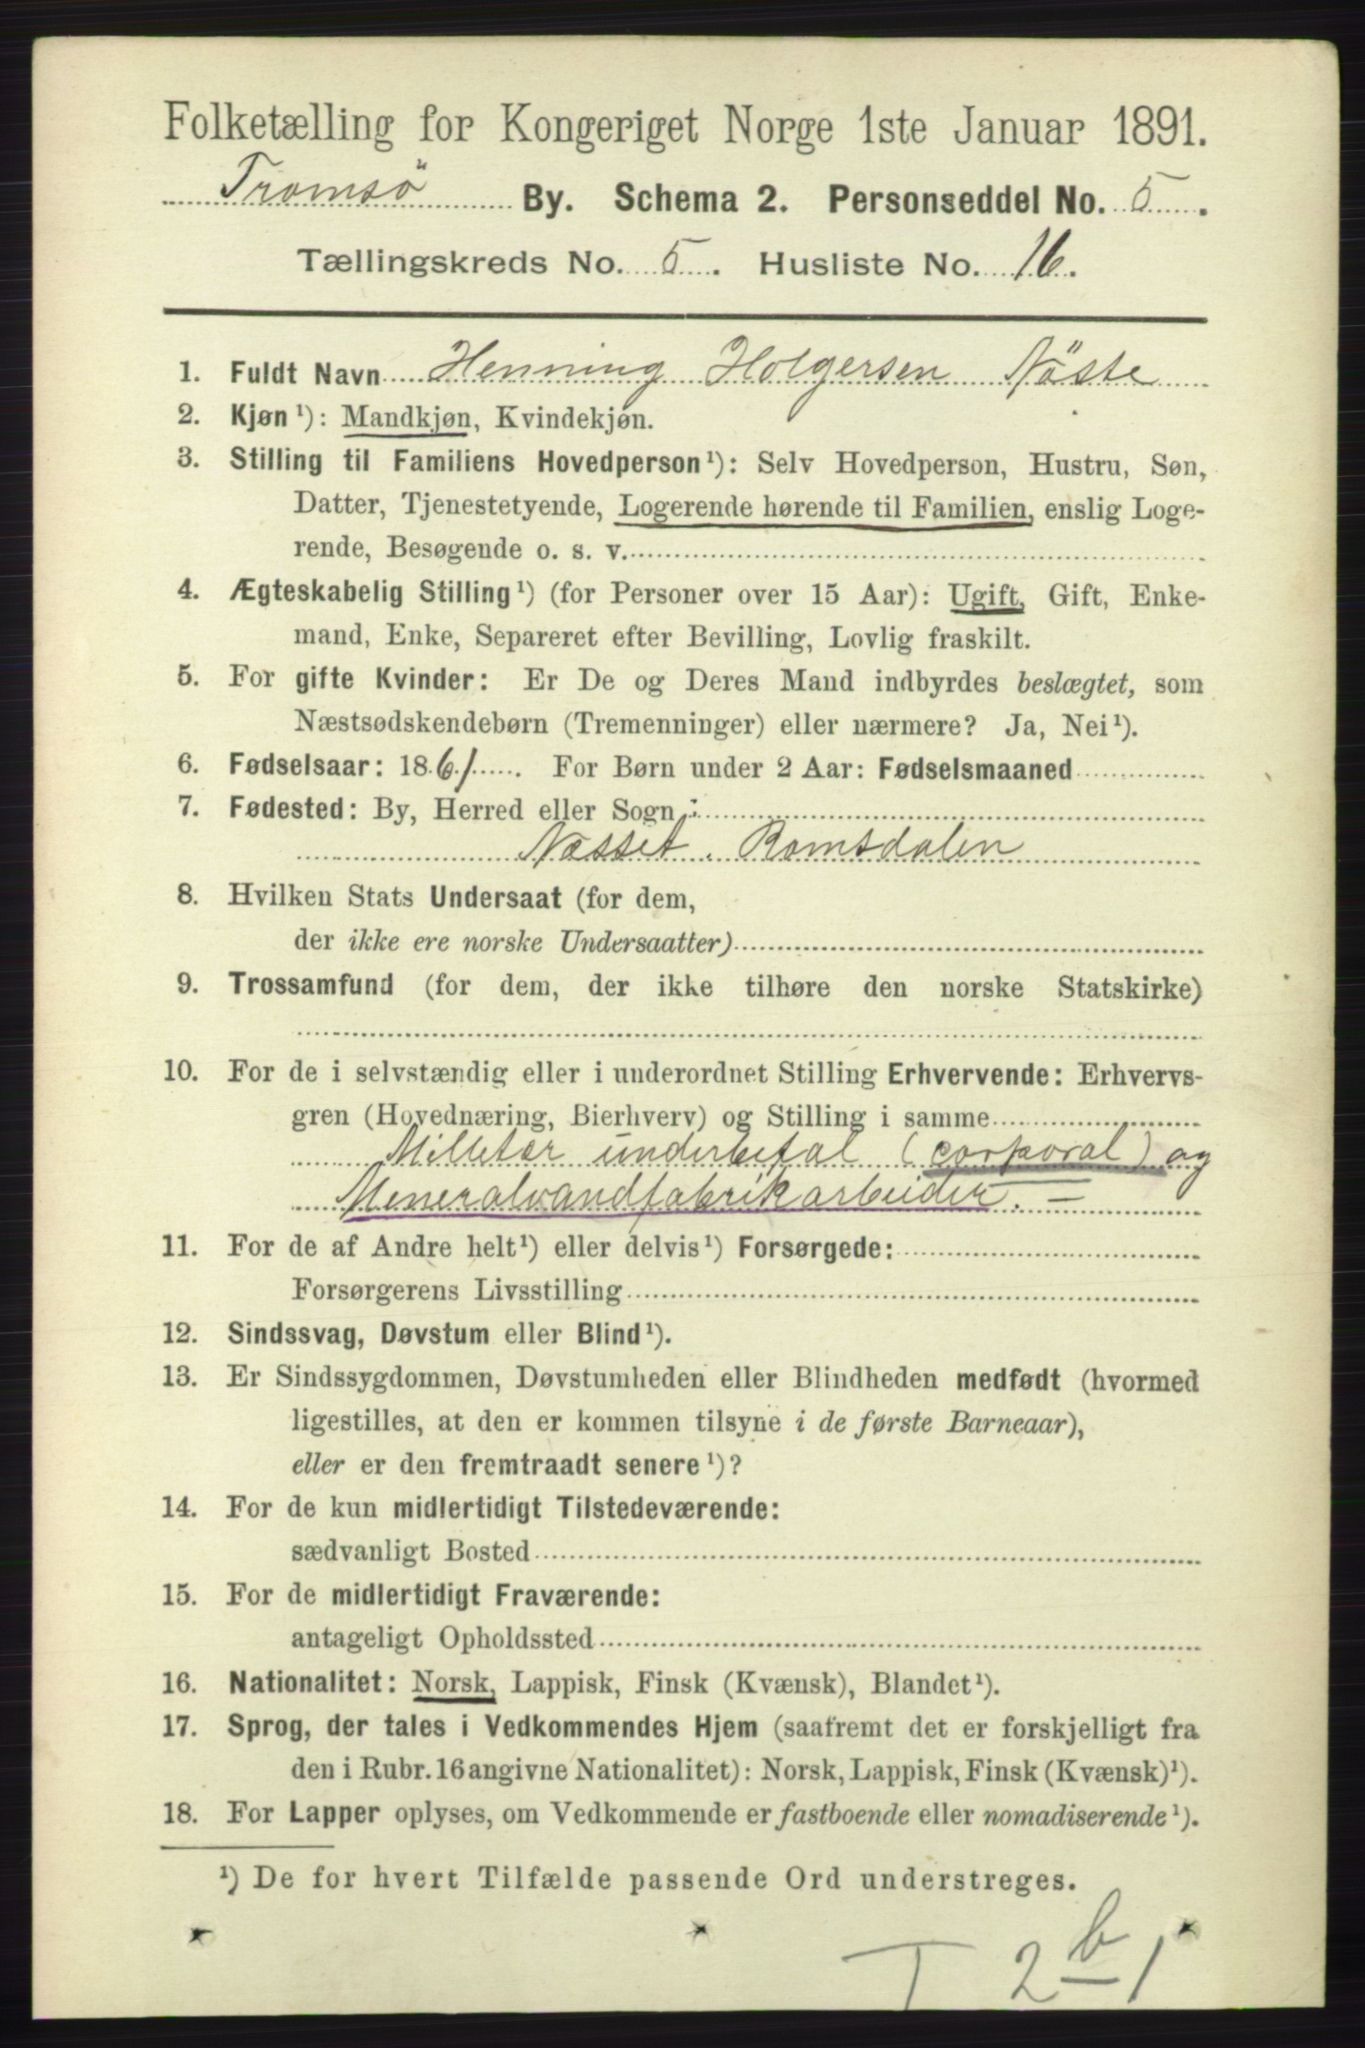 Folketælling for Kongeriget Norge 1ste Januar 1891.
Tromsö By. Schema 2. Personseddel No. 5.
Tællingskreds No. 5. Husliste No. 16.
1. Fuldt Navn Henning Holgersen Nöste
2. Kjøn ¹): Mandkjøn, Kvindekjøn.
3. Stilling til Familiens Hovedperson¹): Selv Hovedperson, Hustru, Søn,
Datter, Tjenestetyende, Logerende hørende til Familien, enslig Loge-
rende, Besøgende o. s. v.
4. Ægteskabelig Stilling¹) (for Personer over 15 Aar): Ugift, Gift, Enke-
mand, Enke, Separeret efter Bevilling, Lovlig fraskilt.
5. For gifte Kvinder: Er De og Deres Mand indbyrdes beslægtet, som
Næstsødskendebørn (Tremenninger) eller nærmere? Ja, Nei¹).
6. Fødselsaar: 1861. For Børn under 2 Aar: Fødselsmaaned
7. Fødested: By, Herred eller Sogn :
Næsset. Romsdalen
8. Hvilken Stats Undersaat (for dem,
der ikke ere norske Undersaatter)
9. Trossamfund (for dem, der ikke tilhøre den norske Statskirke)
10. For de i selvstændig eller i underordnet Stilling Erhvervende: Erhvervs-
gren (Hovednæring, Bierhverv) og Stilling i samme
Milletær underbefal (corporal) og
Meneralvandfabrikarbeider. —
11. For de af Andre helt¹) eller delvis¹) Forsørgede:
Forsørgerens Livsstilling
12. Sindssvag, Døvstum eller Blind¹).
13. Er Sindssygdommen, Døvstumheden eller Blindheden medfødt (hvormed
ligestilles, at den er kommen tilsyne i de første Barneaar),
eller er den fremtraadt senere ¹)?
14. For de kun midlertidigt Tilstedeværende:
sædvanligt Bosted
15. For de midlertidigt Fraværende:
antageligt Opholdssted
16. Nationalitet: Norsk, Lappisk, Finsk (Kvænsk), Blandet¹).
17. Sprog, der tales i Vedkommendes Hjem (saafremt det er forskjelligt fra
den i Rubr. 16 angivne Nationalitet): Norsk, Lappisk, Finsk (Kvænsk)¹).
18. For Lapper oplyses, om Vedkommende er fastboende eller nomadiserende¹).
¹) De for hvert Tilfælde passende Ord understreges.
T 2 b 1